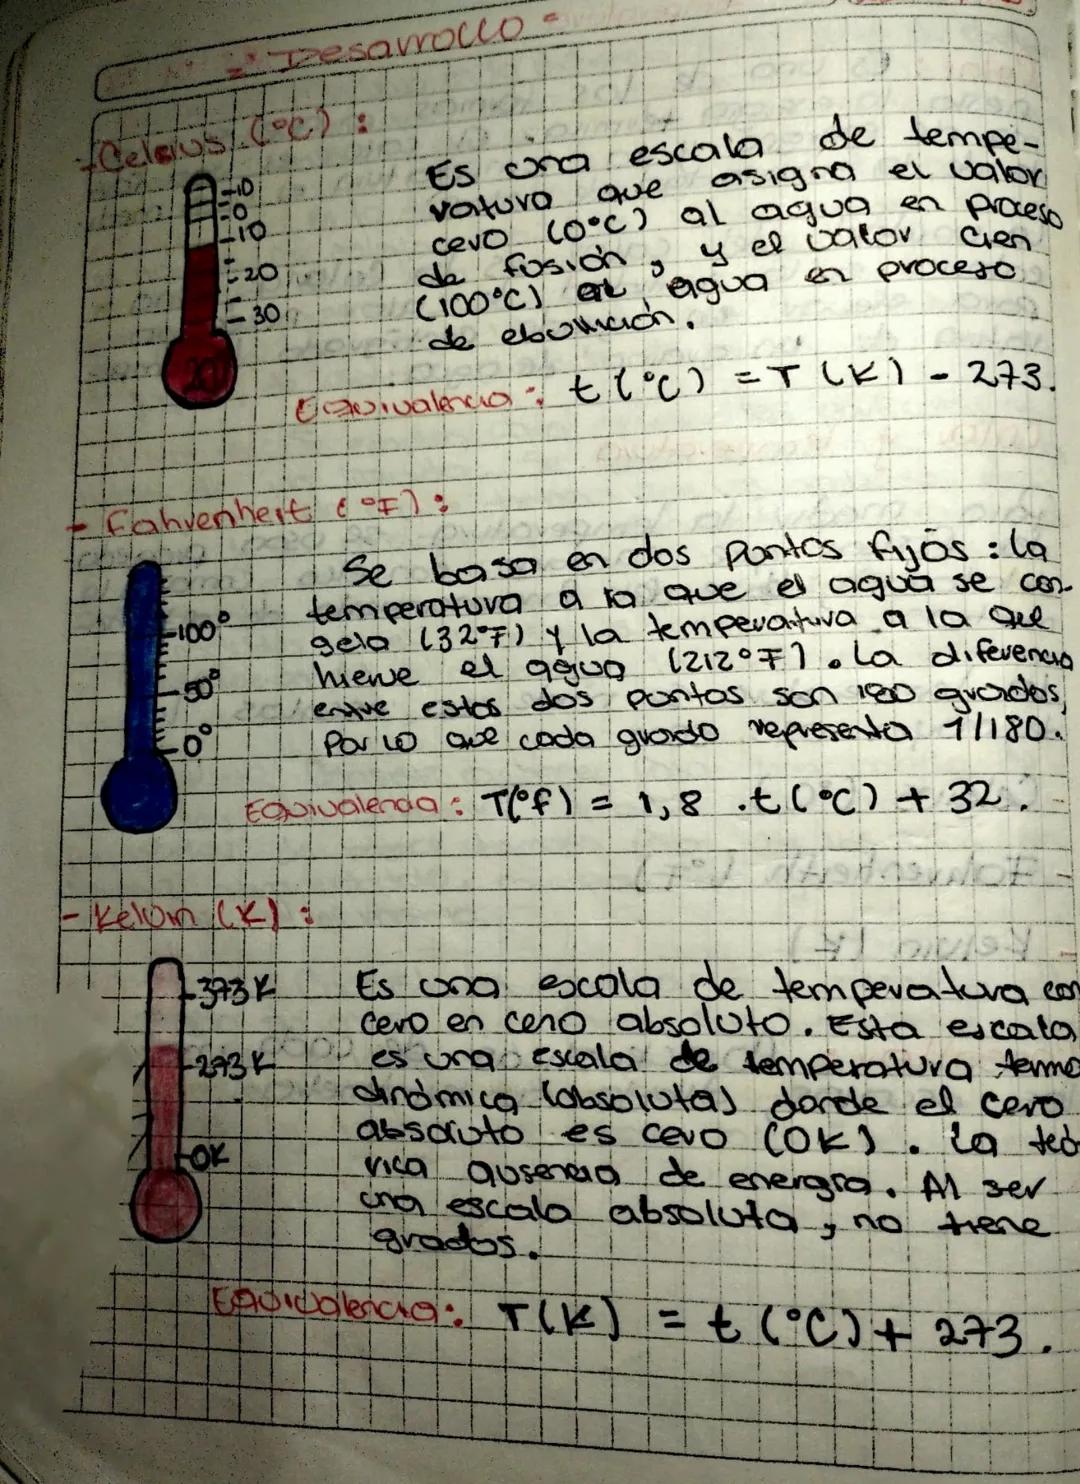 Desarrollo
- Celsius (°C) :
-10
-0
-10
-20
-30
20
Es una escala de tempe-
ratura que asigna el valor
cero (0°C) al agua en proceso
de fusión, y el valor cien
(100°C) al agua en proceso
de ebullición.
Equivalencia: t(°C) = T(K) - 273.
- Fahrenheit (°F) :
-100°
-50°
-0°
Se basa en dos puntos fijos : la
temperatura a la que el agua se con-
gela (32°F) y la temperatura a la que
hierve el agua (212°F). La diferencia
entre estos dos puntos son 180 grados,
por lo que cada grado representa 1/180.
Equivalencia: T(°F) = 1,8 . t(°C) + 32.
- Kelvin (K) :
-373 K
-273 K
-0K
Es una escala de temperatura con
cero en cero absoluto. Esta escala
es una escala de temperatura termo
dinámica (absoluta) donde el cero
absoluto es cero (0K). La teó
rica ausencia de energía. Al ser
una escala absoluta, no tiene
grados.
Equivalencia: T(K) = t(°C) + 273.